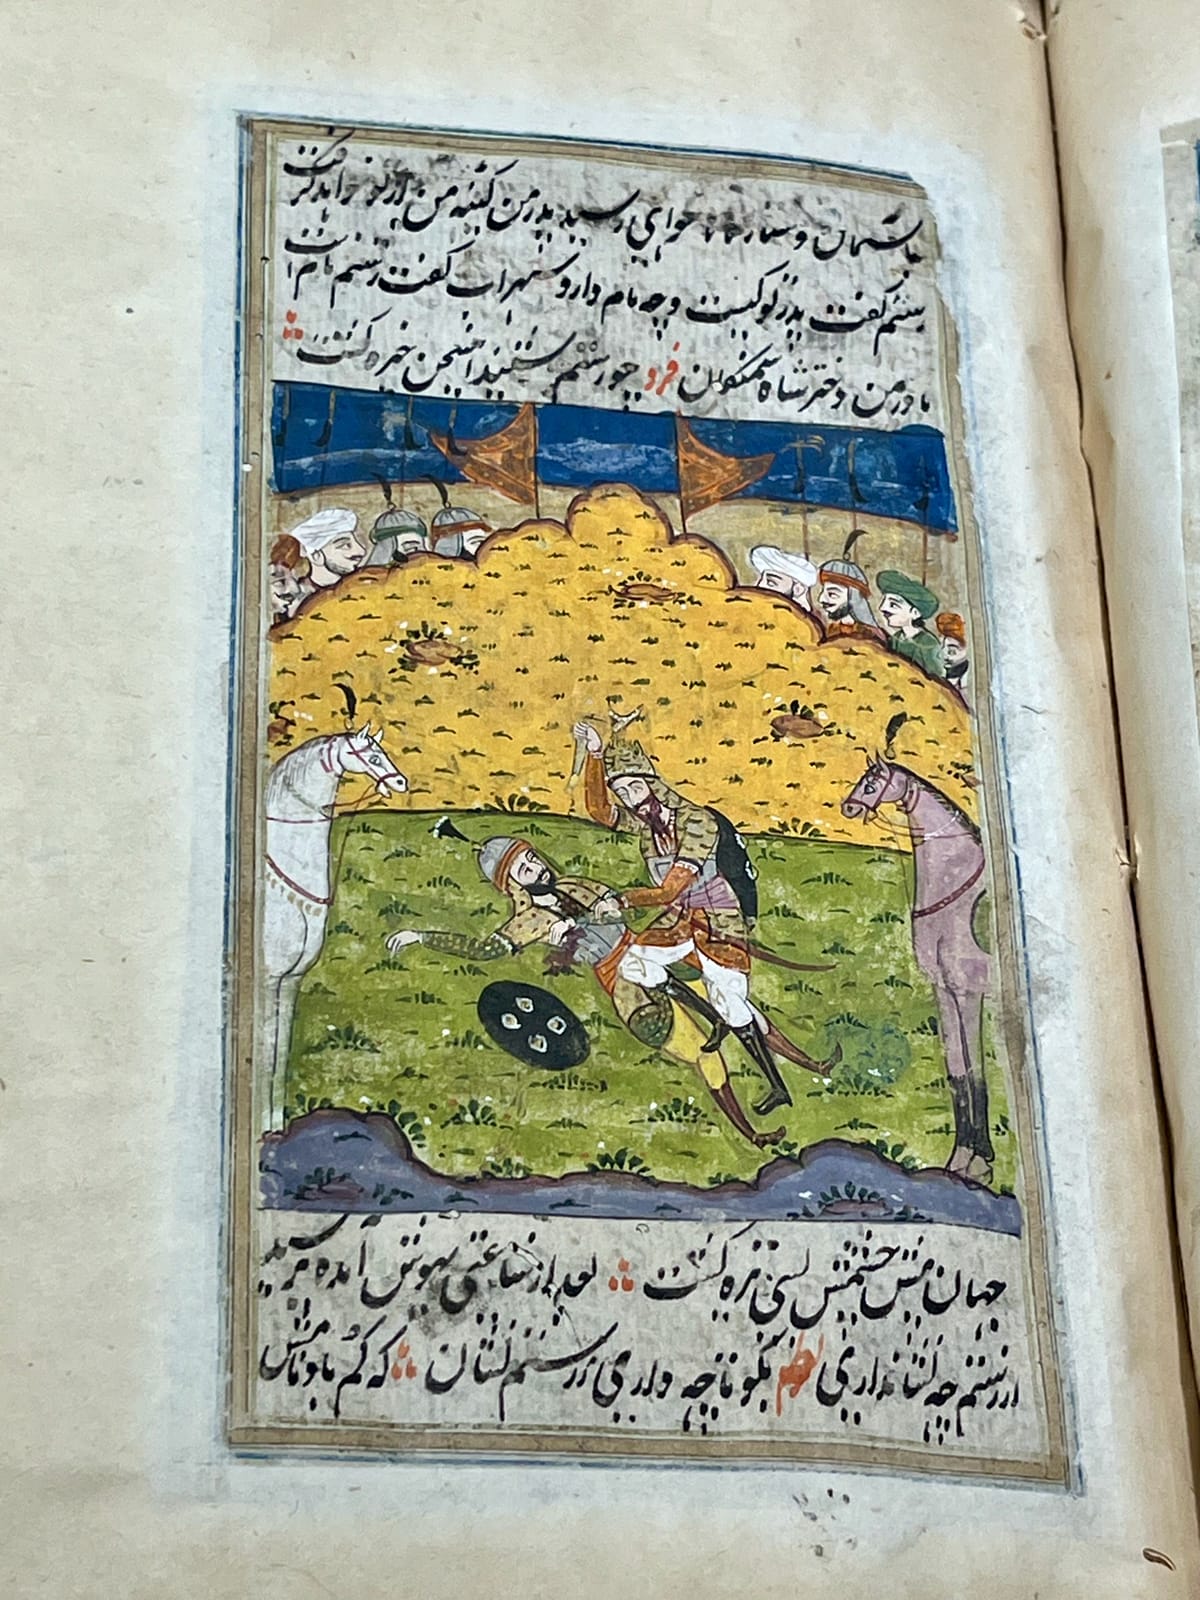 بآسمان و ستاره خواهی رسید پدر من کینه من از تو خواهد گرفت
رستم گفت پدر تو کیست و چه نام دارد سهراب گفت رستم نام است
مادر من دختر شاه سمنگان فرد چو رستم شنید این سخن خیره گشت
جهان پیش چشمش بسی تیره گشت بعد از ساعتی بهوش آمده پرسید
از رستم چه نشانداری نظم بگو تا چه داری ز رستم نشان که گم باد نامش